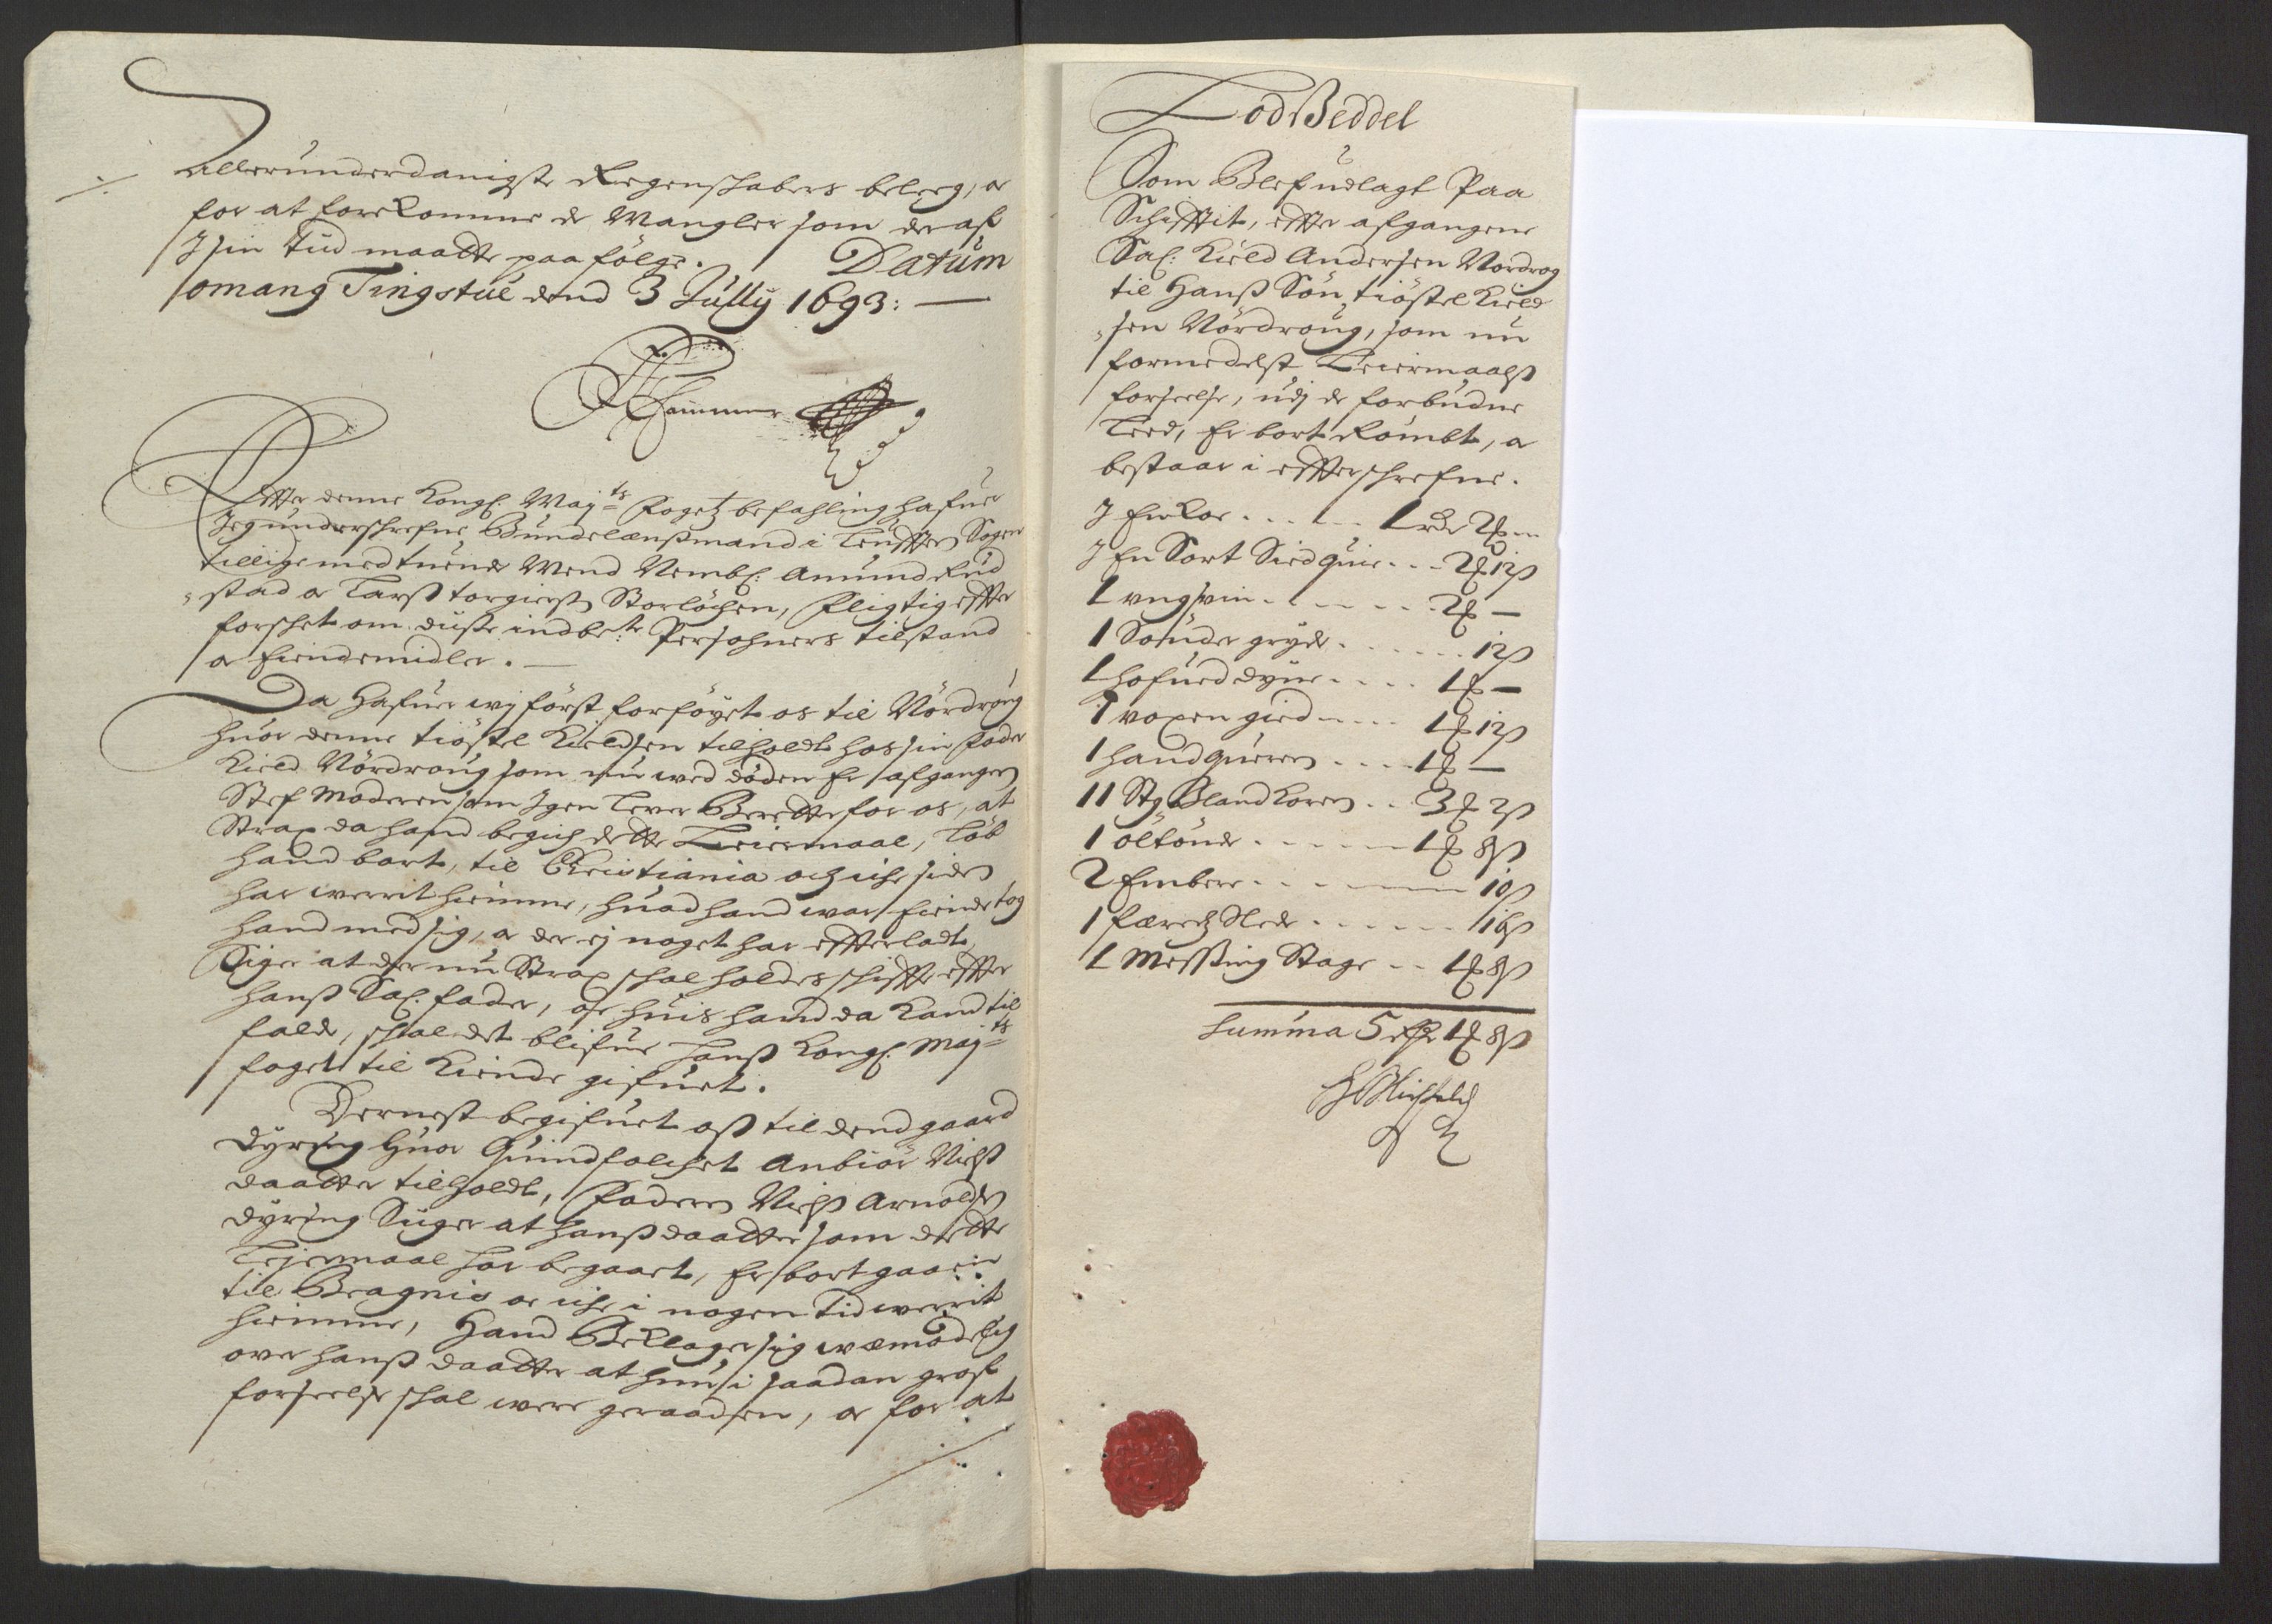 Allerunderdanigste Regenskabers beleeg, og
for at forekomme de Mangler som der af
J sin tiid maatte paa følge. Datum
somang Tingstue dend 3 Jully 1693: —
Hammer
Effter denne Kongl: May:ts Fogetz befahling hafuer
Jeg underschrefne Bundelænsmand i Sogen
tillige med tuende Mend Nembl: Amund Rud
stad og Larss torgierss Storløchen, fligtig effter
forschet om disse indbete Persohners tilstand
og Eiendemidler. —
Da hafuer wj først forføyet os til Nordroug
huor denne tiøstel Kieldsen tilholdt hos sin fader
Kield Nordroug som nu wed døden Er afgangen
Stef Moderen som Jgen lever Berette for os, at
Strax da hand begich dette Leiermaal, løb
hand bort, til Christiania och iche siden
har werret hiemme, huad hand war Eiende tog
hand med sig, og der ej noget har effterladt,
Siger at der nu Strax schal holdes schiffte effter
hanss Sal: fader, og huis hand da kand til
falde, schal det blifue hanss Kongl: May:ts
foget til Kiende gifuet.
Dernest begifuet oss til dend gaard
Dyring huor Quindfolchet Anbiør Nielss
daatter tilholdt, faderen Nielss Arnoldss
Dyring Siiger at hanss daatter som dette
Lejermaal har begaaet, Er bortgaaen
til Bragnis og iche i nogen tid werrit
hiemme, hand Beklager sig wemodelig
over hanss daatter at hun i saadan grof
forseelse schal were geraaden, og for at
Lodtzeddel
Som Blef udlagt Paa
Schifftit, effter afgangene
Sal: Kield Andersen Nordrog
til Hanss Søn tiøstel Kield
sen Nordroug, som nu
formedelst Leiermaalss
forseelse, udj de forbudne
Leed, Er bort Rømbt, og
bestaar i effterschrefne.
J En koe . . . . . 1 rdr 2 ʒ —
J En Sort Siedquie . . . 2 ʒ 12 ß
1 ungsvin . . . . . 2 ʒ —
1 Sønder gryde . . . . . 12 ß
1 hofued dyne . . . . 1 ʒ —
1 voxen gied . . . . 1 ʒ 12 ß
1 handqueren . . . . 1 ʒ —
11 Stg Bland koren . . 3 ʒ 2 ß
1 øltønde . . . . . 1 ʒ 8 ß
2 Embere . . . . . 10 ß
1 færetz Slede . . . . . 16 ß
1 Messing Stage . . 1 ʒ 8 ß
Summa 5 rdr 1 ʒ 8 ß